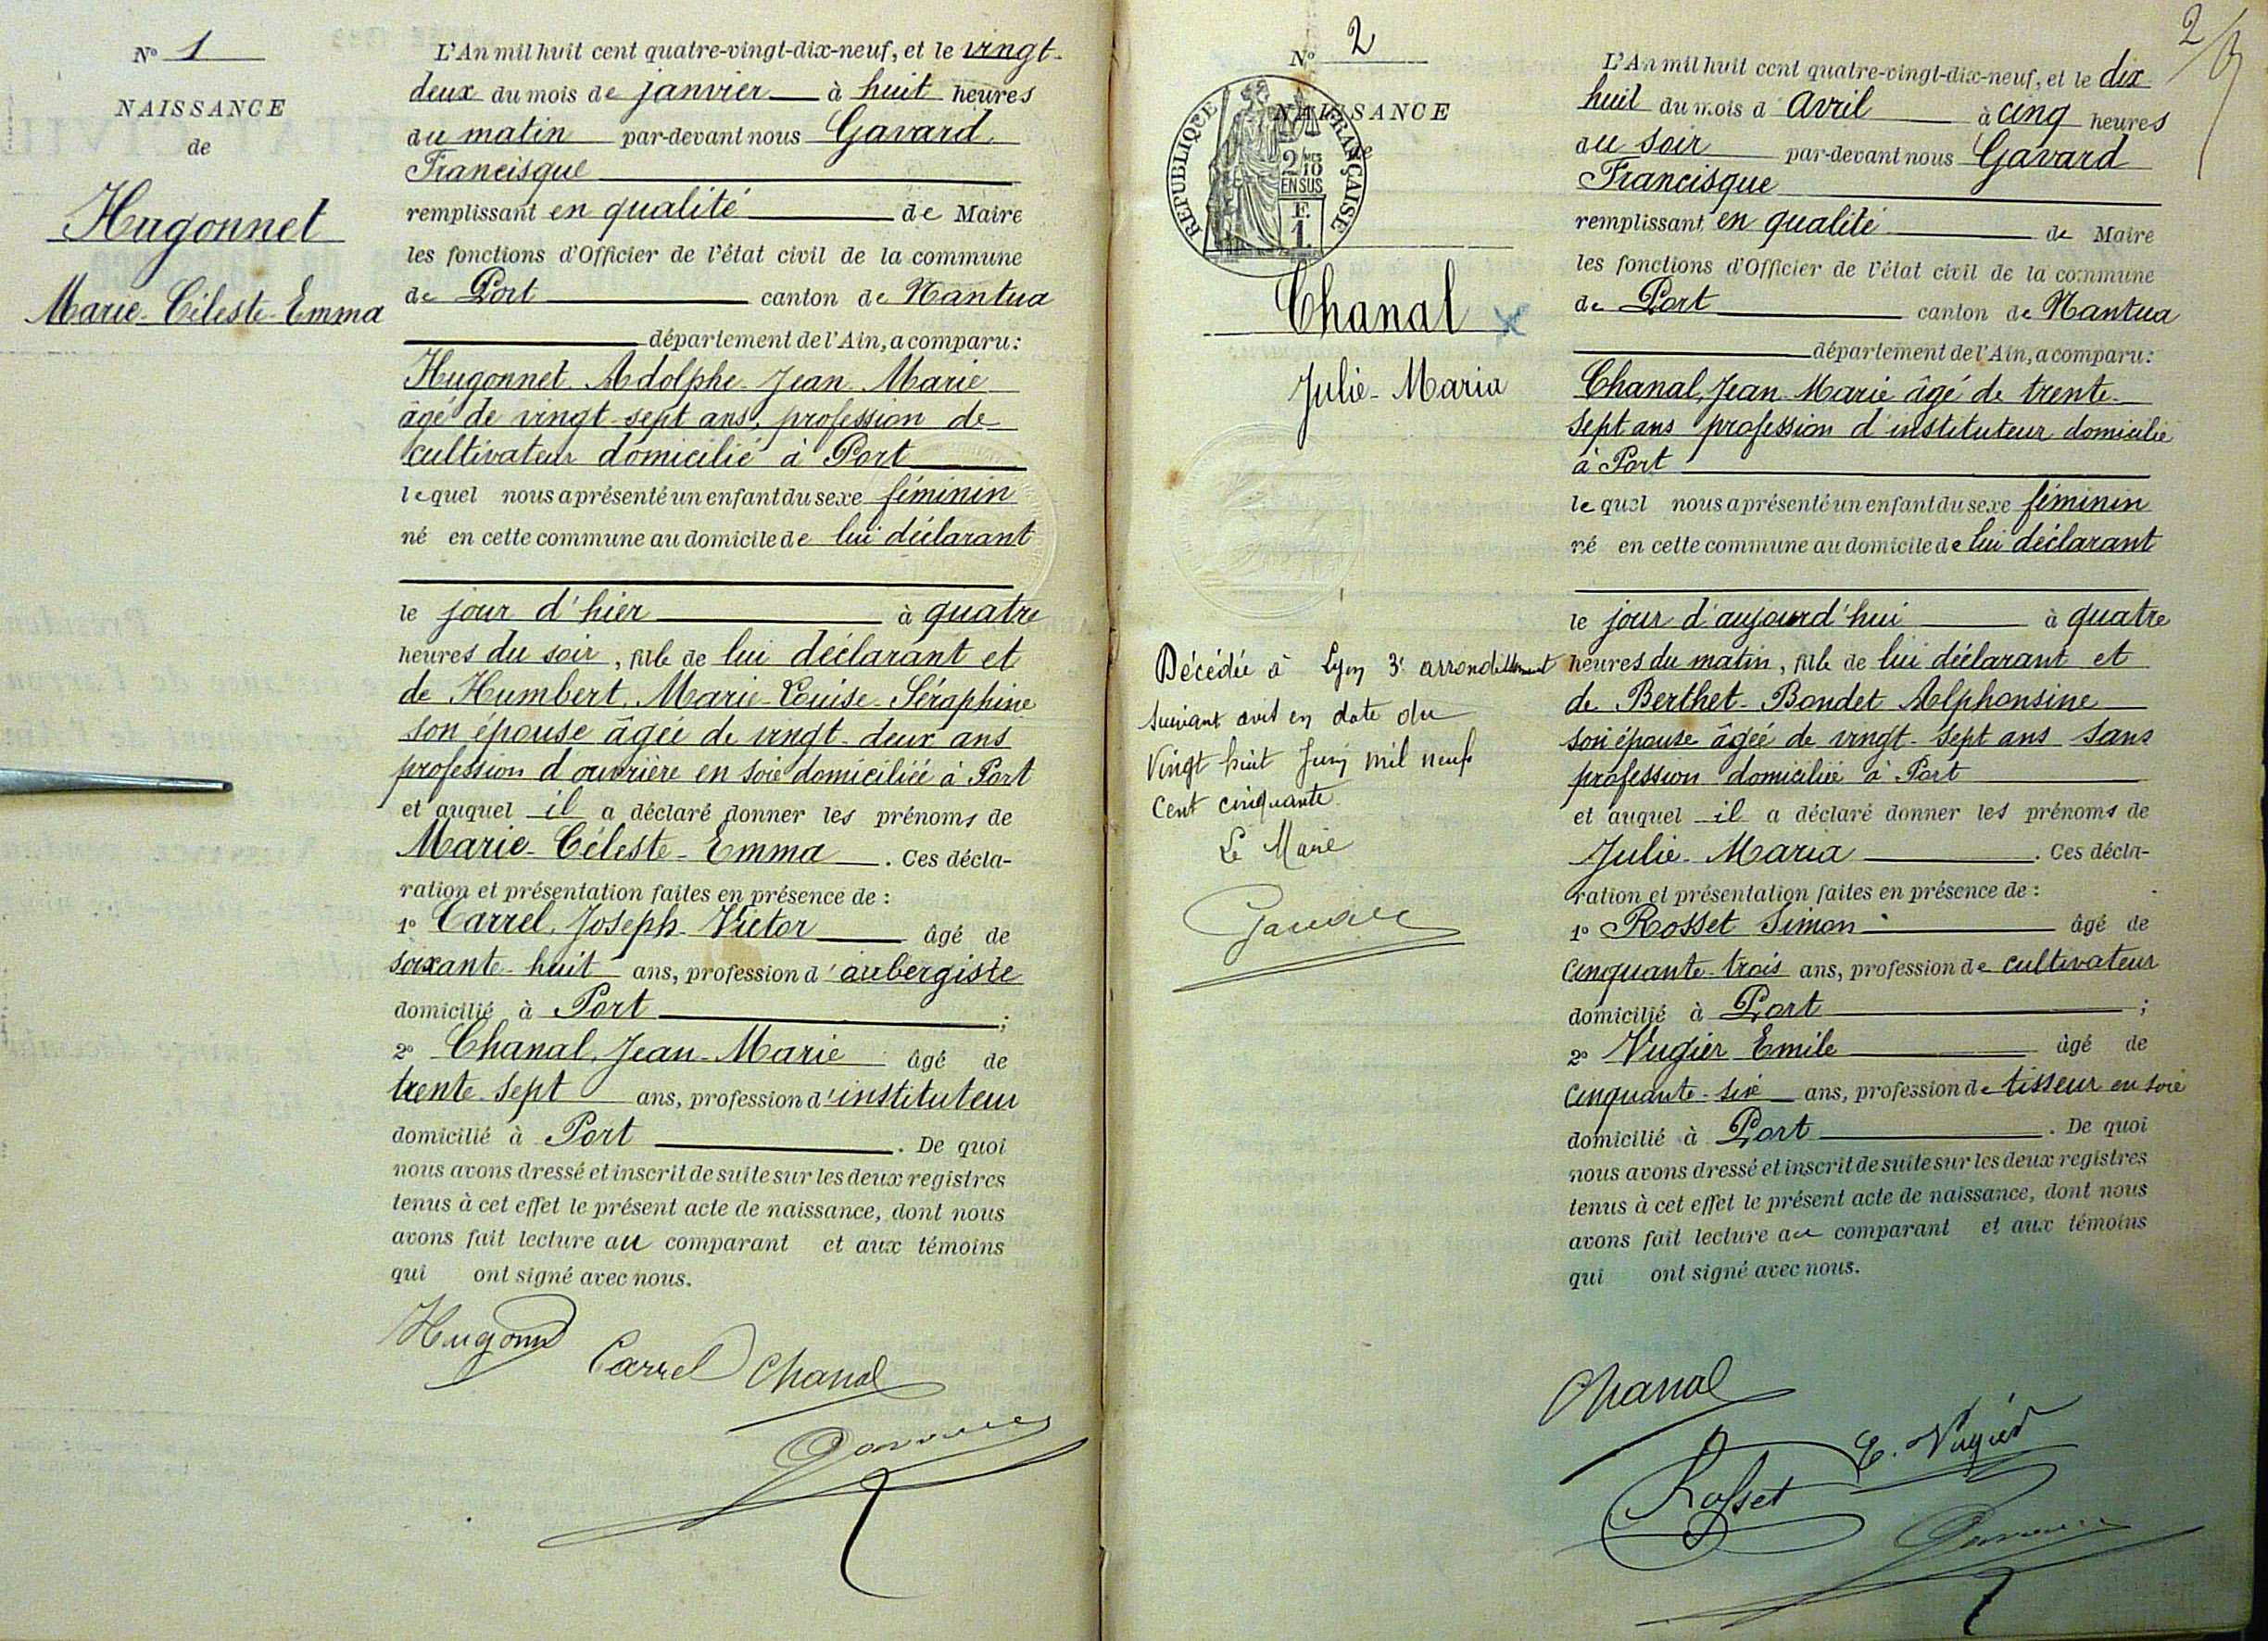 N° 1
NAISSANCE
de
Hugonnet
Marie-Céleste-Emma
L'An mil huit cent quatre-vingt-dix-neuf, et le vingt-
deux du mois de janvier à huit heures
du matin par-devant nous Gavard
Francisque
remplissant en qualité de Maire
les fonctions d'Officier de l'état civil de la commune
de Port canton de Nantua
département de l'Ain, a comparu:
Hugonnet Adolphe-Jean-Marie
âgé de vingt-sept ans, profession de
cultivateur domicilié à Port
lequel nous a présenté un enfant du sexe féminin
né en cette commune au domicile de lui déclarant
le jour d'hier à quatre
heures du soir, fille de lui déclarant et
de Humbert, Marie-Louise-Séraphine
son épouse âgée de vingt-deux ans
profession d'ouvrière en soie domiciliée à Port
et auquel il a déclaré donner les prénoms de
Marie-Céleste-Emma. Ces décla-
ration et présentation faites en présence de :
1° Carrel, Joseph-Victor âgé de
soixante-huit ans, profession d'aubergiste
domicilié à Port ;
2° Chanal, Jean-Marie âgé de
trente-sept ans, profession d'instituteur
domicilié à Port. De quoi
nous avons dressé et inscrit de suite sur les deux registres
tenus à cet effet le présent acte de naissance, dont nous
avons fait lecture au comparant et aux témoins
qui ont signé avec nous.
Hugonnet
Carrel Chanal
Gavard
2
N° 2
NAISSANCE
de
RÉPUBLIQUE FRANÇAISE
2/10 EN SUS
F. 1
Chanal
Julie-Maria
Décédée à Lyon 3e arrondissement
suivant avis en date du
vingt huit Juin mil neuf
cent cinquante.
Le Maire
L'An mil huit cent quatre-vingt-dix-neuf, et le dix
huit du mois d'Avril à cinq heures
du soir par-devant nous Gavard
Francisque
remplissant en qualité de Maire
les fonctions d'Officier de l'état civil de la commune
de Port canton de Nantua
département de l'Ain, a comparu:
Chanal, Jean-Marie âgé de trente-
sept ans profession d'instituteur domicilié
à Port
lequel nous a présenté un enfant du sexe féminin
né en cette commune au domicile de lui déclarant
le jour d'aujourd'hui à quatre
heures du matin, fille de lui déclarant et
de Berthet-Bondet Alphonsine
son épouse âgée de vingt-sept ans sans
profession domiciliée à Port
et auquel il a déclaré donner les prénoms de
Julie-Maria. Ces décla-
ration et présentation faites en présence de :
1° Rosset Simon âgé de
cinquante-trois ans, profession de cultivateur
domicilié à Port ;
2° Vugier Emile âgé de
cinquante-six ans, profession de tisseur en soie
domicilié à Port. De quoi
nous avons dressé et inscrit de suite sur les deux registres
tenus à cet effet le présent acte de naissance, dont nous
avons fait lecture au comparant et aux témoins
qui ont signé avec nous.
Chanal
E. Vugier
Rosset
Gavard